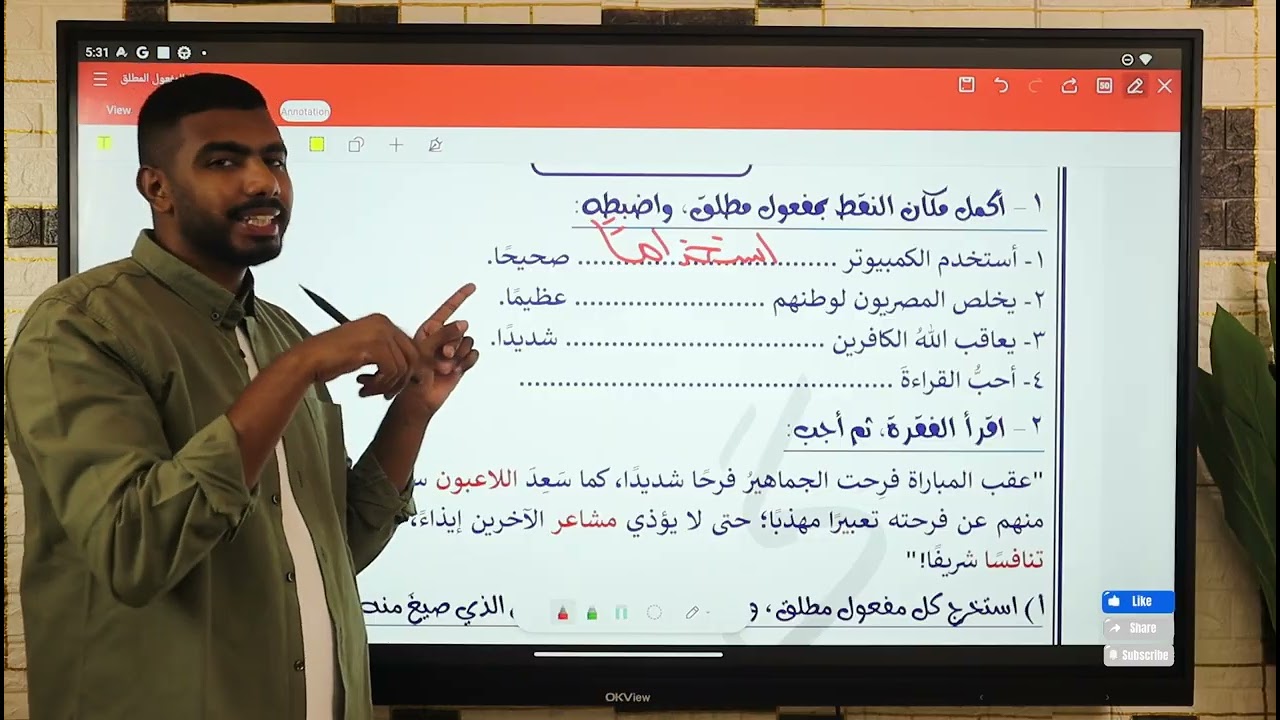 5:31
المفعول المطلق
View
Annotation
١ - أكمل مكان النقط بمفعول مطلق، واضبطه:
١- أستخدم الكمبيوتر ........ استخدامًا ........ صحيحًا.
٢- يخلص المصريون لوطنهم ........................ عظيمًا.
٣- يعاقب اللهُ الكافرين ................................ شديدًا.
٤- أحبُّ القراءةَ ................................................
٢ - اقرأ الفقرة، ثم أجب:
"عقب المباراة فرِحت الجماهيرُ فرحًا شديدًا، كما سَعِدَ اللاعبون
منهم عن فرحته تعبيرًا مهذبًا؛ حتى لا يؤذي مشاعر الآخرين إيذاءً،
تنافسًا شريفًا!"
أ) استخرج كل مفعول مطلق، و الذي صيغَ منه
OKView
Like
Share
Subscribe